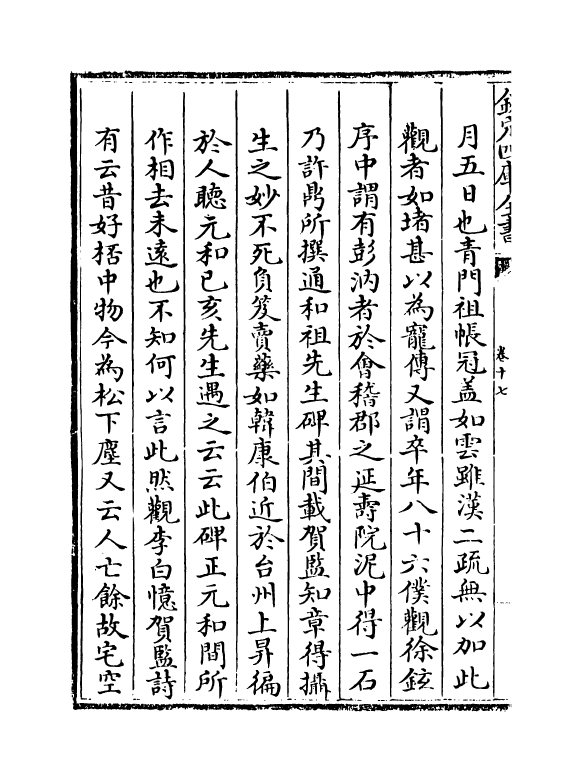 欽定四庫全書
卷十七
月五日也青門祖帳冠盖如雲雖漢二疏無以加此
觀者如堵甚以為寵傳又謂卒年八十六僕觀徐鉉
序中謂有彭汭者於㑹稽郡之延壽院泥中得一石
乃許鼎所撰通和祖先生碑其間載賀監知章得攝
生之妙不死負笈賣藥如韓康伯近於台州上昇徧
於人聽元和己亥先生遇之云云此碑正元和間所
作相去未遠也不知何以言此然觀李白憶賀監詩
有云昔好桮中物今為松下塵又云人亡餘故宅空